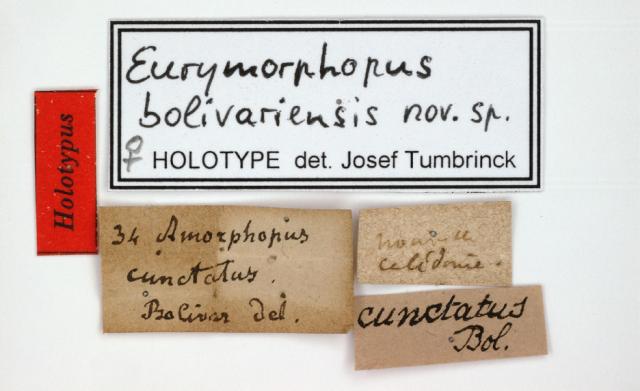 Eurymorphopus
bolivariensis nov. sp.
♀ HOLOTYPE det. Josef Tumbrinck
Holotypus
34 Amorphopus
cunctatus.
Bolivar det.
calédonie.
cunctatus
Bol.